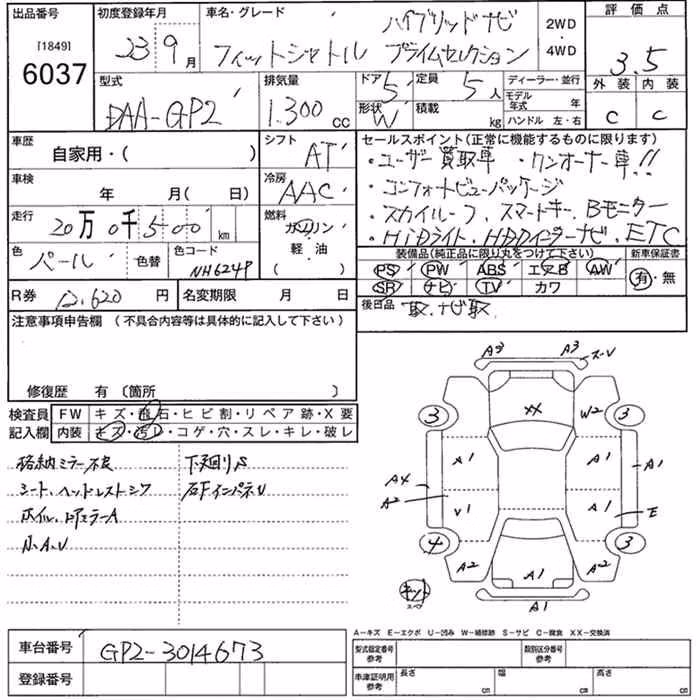 出品番号 初度登録年月 車名・グレード 評価点
[1849]
6037
23 9月
ハイブリッド ナビ
フィットシャトル プライムセレクション
2WD
・
4WD
3.5
外装 内装
C C
型式
DAA-GP2
排気量
1.300 cc
ドア 5
定員 5人
形状 W
積載 kg
ディーラー・並行
モデル年式 年
ハンドル 左・右
車歴
自家用・( )
シフト
AT
車検
年 月( 日)
冷房
AAC
走行
20万0千500 km
燃料
ガソリン
軽・油
( )
色
パール
色替
色コード
NH624P
R券 12,620 円
名変期限 月 日
セールスポイント(正常に機能するものに限ります)
・ユーザー買取車 ・ワンオーナー車!!
・コンフォートビューパッケージ
・スカイルーフ、スマートキー、Bモニター
・HiDライト、HDDインターナビ、ETC
装備品(純正品に限り丸をつけて下さい) 新車保証書
PS PW ABS エアB AW
SR ナビ TV カワ
有・無
後日品 取、ナビ取
注意事項申告欄(不具合内容等は具体的に記入して下さい)
修復歴 有(箇所 )
検査員 FW キズ・飛石・ヒビ割・リペア跡・X要
記入欄 内装 キズ・汚レ・コゲ・穴・スレ・キレ・破レ
格納ミラー不良 下廻りS
シート、ヘッドレストシワ
小A、U
A3 A3
XX W2
3 3
A1 A1 A1
A4
A2 A1 E
4 3
A2 A1 A2
A1
キット
スペア
A-キズ E-エクボ U-凹み W-補修跡 S-サビ C-腐食 XX-交換済
車台番号 GP2-3014673
登録番号
型式指定番号 参考 類別区分番号 参考
車庫証明用 参考 長さ cm 幅 cm 高さ cm